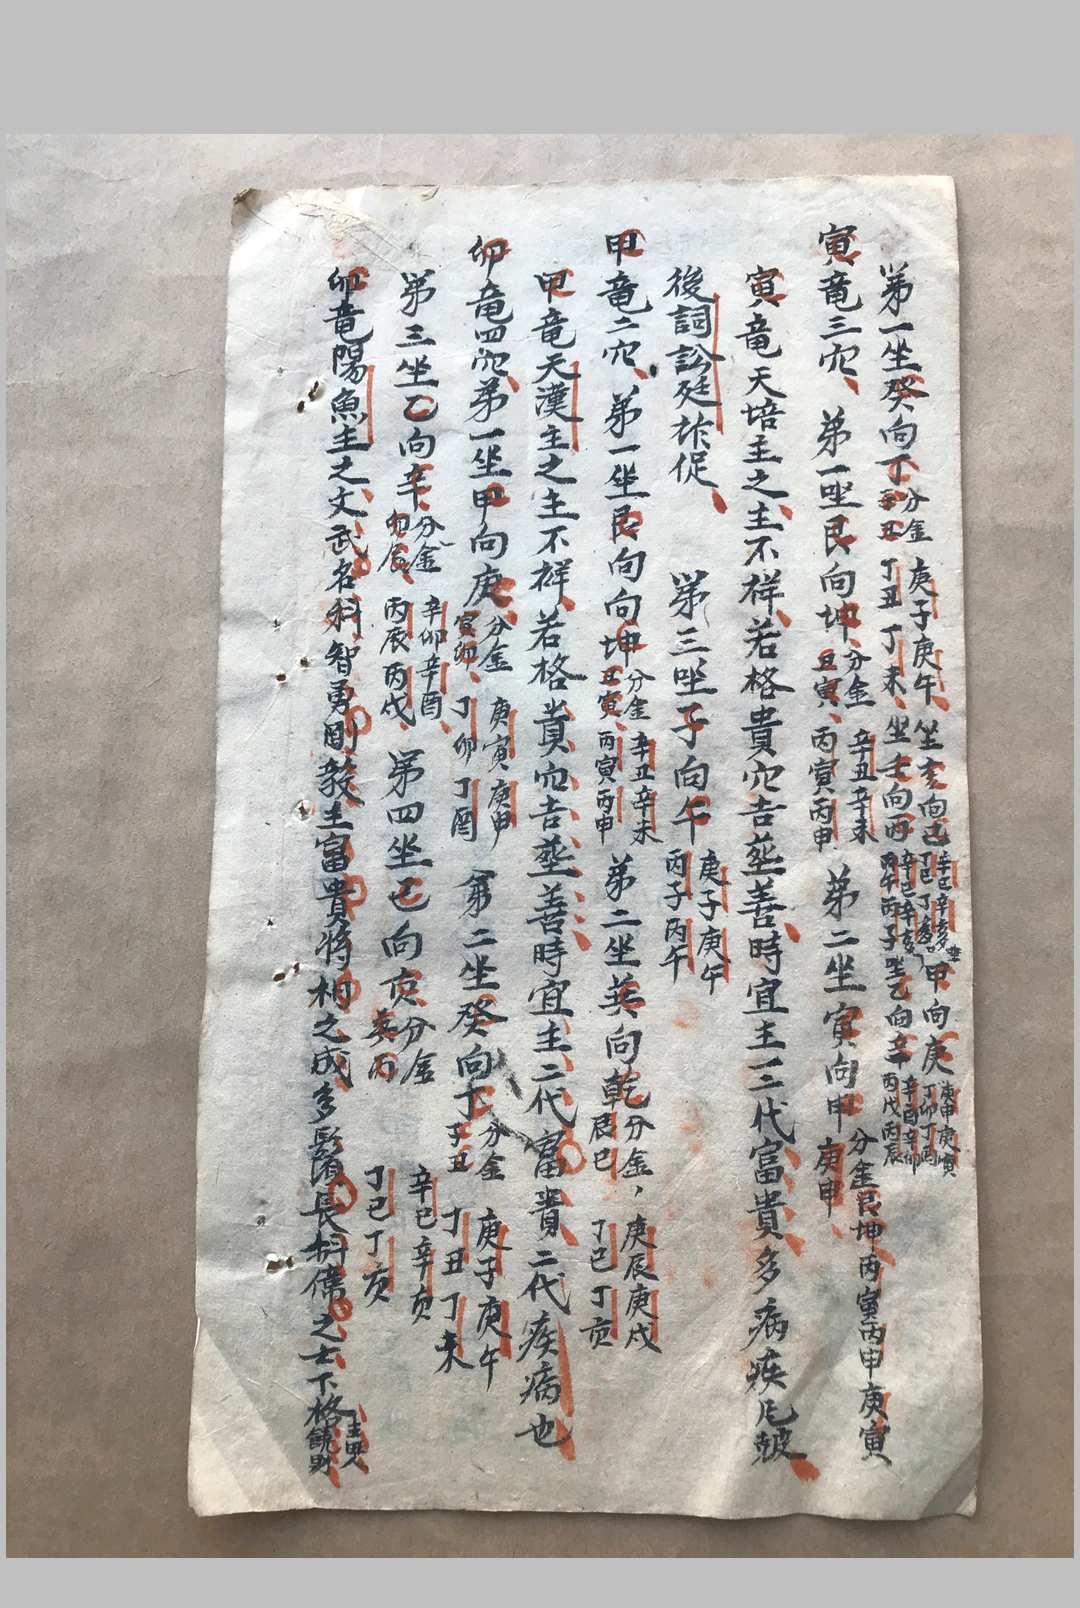 第一坐癸向丁分金子丑庚子庚午丁丑丁未坐亥向巳辛巳辛亥丁巳丁亥坐壬向丙辛巳辛亥丙午丙子坐甲向庚庚申庚寅丁卯丁酉坐乙向辛辛酉辛卯丙戌丙辰
寅竜三穴、第一坐艮向坤分金丑寅辛丑辛未丙寅丙申第二坐寅向申分金艮坤丙寅丙申庚寅庚申
寅竜天培主之主不祥若格貴穴吉葬善時宜主一二代富貴多病疾
後詞訟廷 第三坐子向午庚子庚午丙子丙午
甲竜二穴、第一坐艮向向坤分金丑寅辛丑辛未丙寅丙申第二坐巽向乾分金辰巳庚辰庚戌丁巳丁亥
甲竜天漢主之主不祥若格貴穴吉葬善時宜主二代富貴二代疾病也
卯竜四穴第一坐甲向庚分金寅卯庚寅庚申丁卯丁酉第二坐癸向丁分金子丑庚子庚午丁丑丁未
第三坐乙向辛分金卯辰辛卯辛酉丙辰丙戌第四坐巳向亥分金巽丙辛巳辛亥丁巳丁亥
卯竜陽魚主之文武名科智勇剛毅主富貴將相之成多鬚長偉之士下格饒則主田人